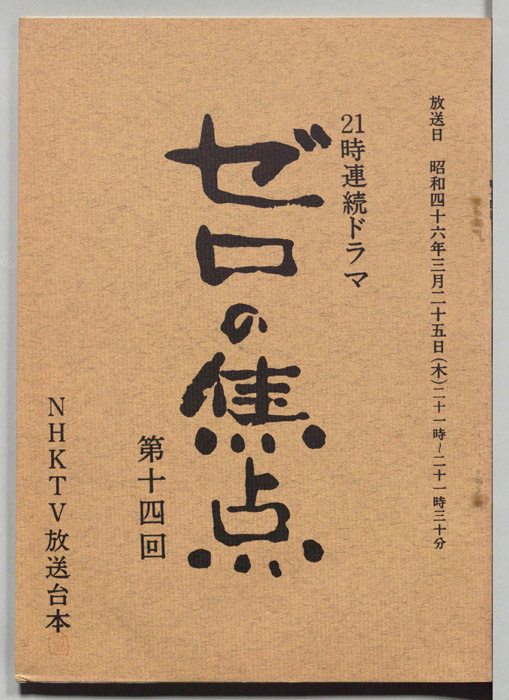 放送日 昭和四十六年三月二十五日(木)二十一時～二十一時三十分
21時連続ドラマ
ゼロの焦点
第十四回
NHKTV放送台本